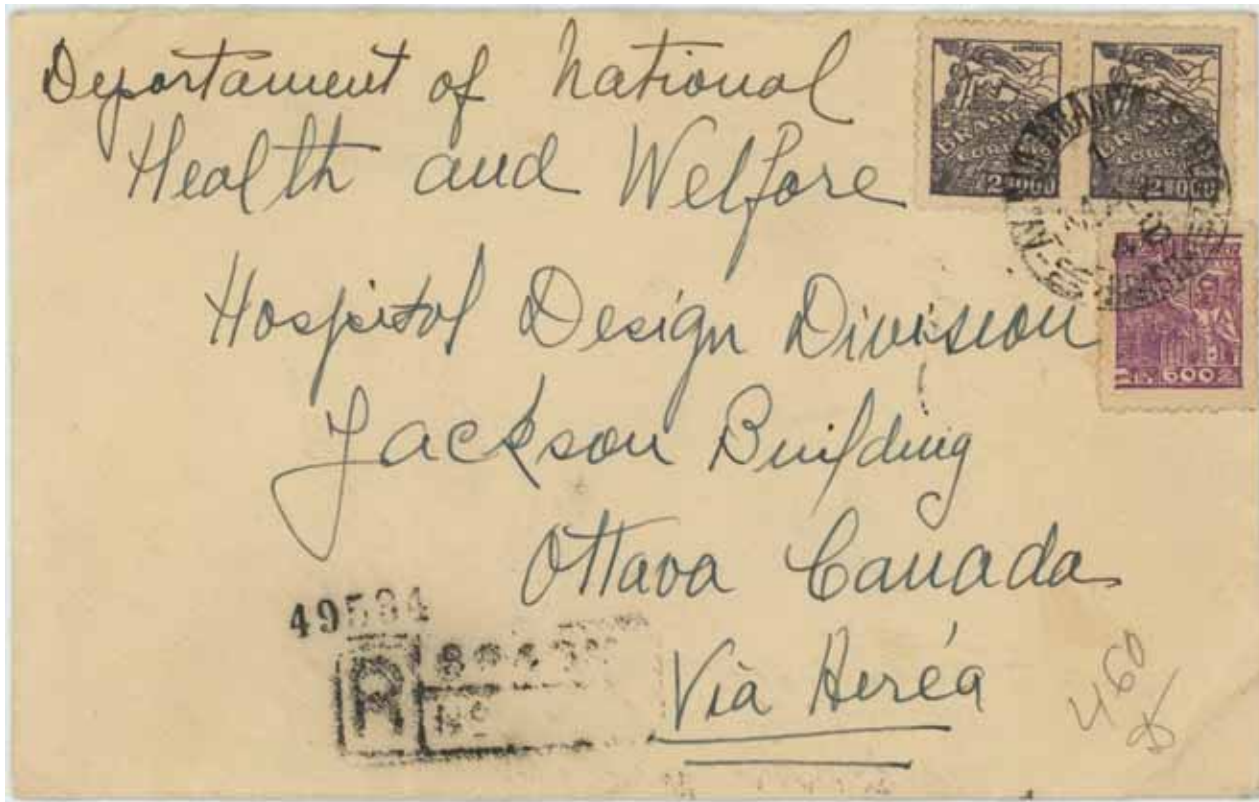 Departament of National
Health and Welfare
Hospital Design Division
Jackson Building
Ottava Canada
Via Aeréa
BRASIL
CORREIO
BRASIL
CORREIO
600
49594
R
Nº
460